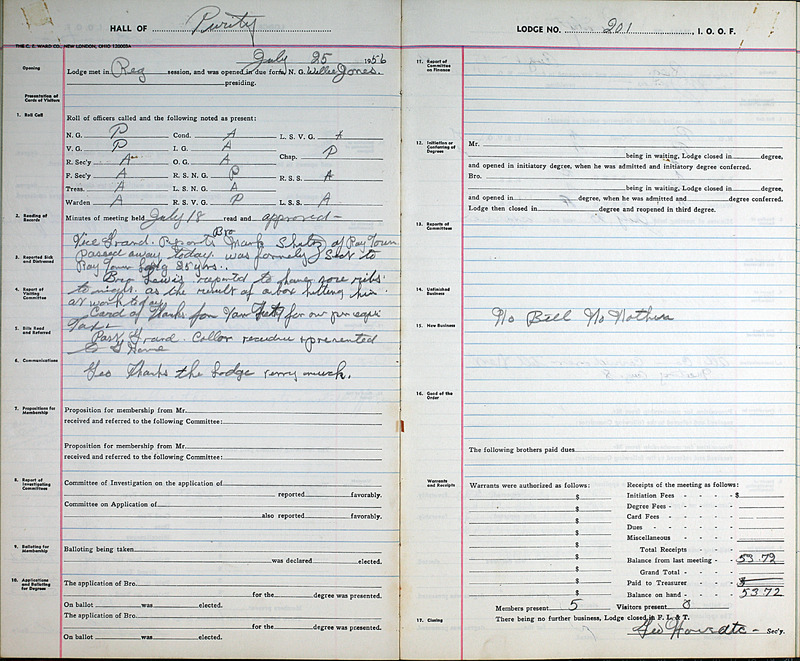 HALL OF Purity
THE C. E. WARD CO., NEW LONDON, OHIO 120003A
July 25 1956
Opening
Lodge met in Reg session, and was opened in due form, N. G. Willie Jones.
presiding.
Presentation of Cards of Visitors
1. Roll Call
Roll of officers called and the following noted as present:
N. G. P Cond. A L. S. V. G. A
V. G. P I. G. A Chap. P
R. Sec'y A O. G. A
F. Sec'y A R. S. N. G. P R. S. S. A
Treas. A L. S. N. G. A
Warden A R. S. V. G. P L. S. S. A
2. Reading of Records
Minutes of meeting held July 18 read and approved —
Bro
Vice Grand. Reports Mark of Ray Town
3. Reported Sick and Distressed
passed away today. was formely Sect to
Ray Town Lodg 25 yrs..
Bro Lewis reported to having sore ribs
4. Report of Visiting Committee
to night. as the result of a box hitting him
at work today
Card of thanks for our
5. Bills Read and Referred
Past Grand. Collar presented
6. Communications
Geo Thanks the Lodge very much.
7. Propositions for Membership
Proposition for membership from Mr.
received and referred to the following Committee:
Proposition for membership from Mr.
received and referred to the following Committee:
8. Report of Investigating Committees
Committee of Investigation on the application of
reported favorably.
Committee on Application of
also reported favorably.
9. Balloting for Membership
Balloting being taken
was declared elected.
10. Applications and Balloting for Degrees
The application of Bro.
for the degree was presented.
On ballot was elected.
The application of Bro.
for the degree was presented.
On ballot was elected.
LODGE NO. 201, I. O. O. F.
11. Report of Committee on Finance
12. Initiation or Conferring of Degrees
Mr.
being in waiting, Lodge closed in degree,
and opened in initiatory degree, when he was admitted and initiatory degree conferred.
Bro.
being in waiting, Lodge closed in degree,
and opened in degree, when he was admitted and degree conferred.
Lodge then closed in degree and reopened in third degree.
13. Reports of Committees
14. Unfinished Business
No Bill No Nothin
15. New Business
16. Good of the Order
The following brothers paid dues
Warrants and Receipts
Warrants were authorized as follows:
$
$
$
$
$
$
$
$
$
Receipts of the meeting as follows:
Initiation Fees - - - - $
Degree Fees - - - -
Card Fees - - - -
Dues - - - -
Miscellaneous - - - -
Total Receipts
Balance from last meeting - - 53.72
Grand Total - -
Paid to Treasurer - - $
Balance on hand - - - 53.72
Members present 5 Visitors present 0
17. Closing
There being no further business, Lodge closed in F. L. & T.
Sec'y.